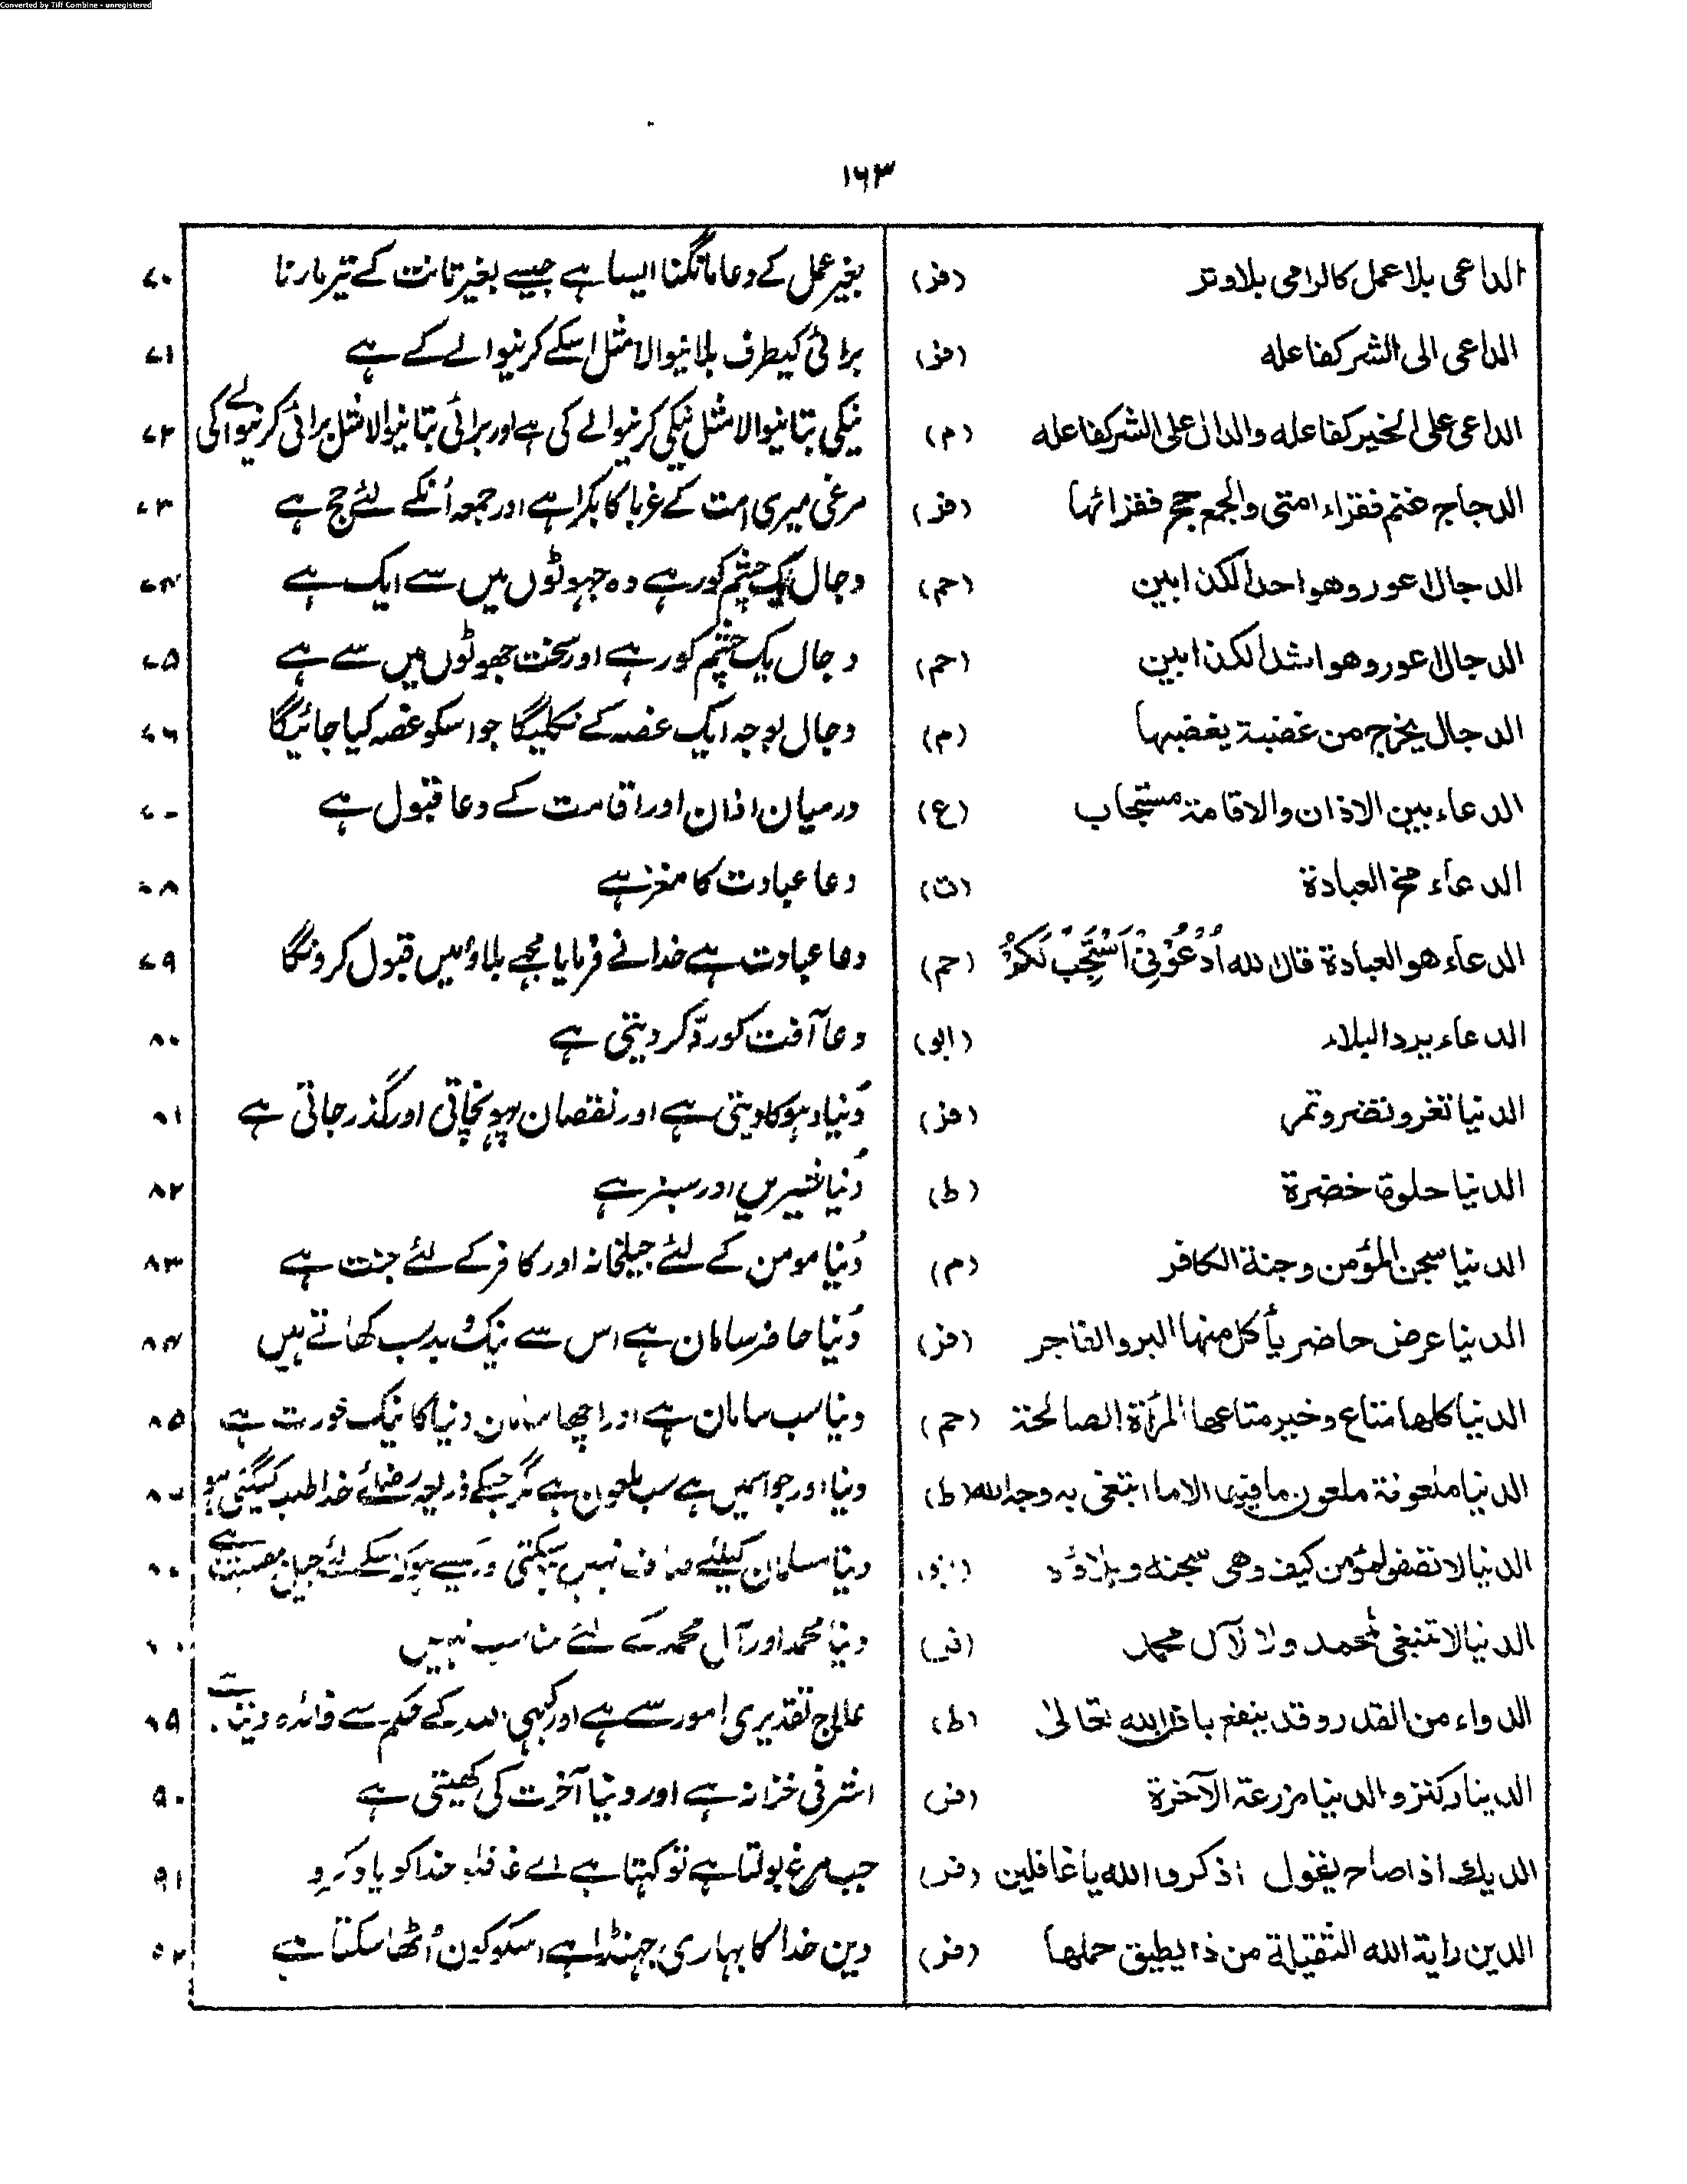 Converted by Tiff Combine - unregistered
۱۶۳
الداعی بلا عمل کالرامی بلا وتر (فر) بغیر عمل کے دعا مانگنا ایسا ہے جیسے بغیر تانت کے تیر مارنا ۷۰
الداعی الی الشر کفاعله (فر) برائی کیطرف بلانیوالا مثل اسکے کرنیوالے کے ہے ۷۱
الداعی علی الخیر کفاعله والدال علی الشر کفاعله (م) نیکی بتانیوالا مثل نیکی کرنیوالے کی ہے اور برائی بتانیوالا مثل برائی کرنیوالے کی ۷۲
الدجاج غنم فقراء امتی والجمع حج فقرائها (فر) مرغی میری امت کے غربا کا بکرا ہے اور جمعہ اُنکے لئے حج ہے ۷۳
الدجال اعور وهو احد الکذابین (حم) دجال یک چشم کور ہے وہ جہوٹوں میں سے ایک ہے ۷۴
الدجال اعور وهو اشد الکذابین (حم) دجال یک چشم کور ہے اور سخت جھوٹوں میں سے ہے ۷۵
الدجال یخرج من غضبة یغضبها (م) دجال بوجہ ایک غصہ کے نکلیگا جو اسکو غصہ کیا جائیگا ۷۶
الدعاء بین الاذان والاقامة مستجاب (ع) درمیان اذان اور اقامت کے دعا قبول ہے
الدعاء مخ العبادة (ت) دعا عبادت کا مغز ہے
الدعاء هو العبادة قال الله اُدْعُوْنِیْ اَسْتَجِبْ لَکُمْ (حم) دعا عبادت ہے خدا نے فرمایا مجھے بلاؤ میں قبول کرونگا ۷۹
الدعاء یرد البلاء (ابو) دعا آفت کو ردّ کر دیتی ہے ۸۰
الدنیا تغر وتضر وتمر (فر) دُنیا دہوکا دیتی ہے اور نقصان پہونچاتی اور گذر جاتی ہے ۸۱
الدنیا حلوة خضرة (ط) دُنیا شیریں اور سبز ہے ۸۲
الدنیا سجن المؤمن وجنة الکافر (م) دُنیا مومن کے لئے جیلخانہ اور کافر کے لئے جنت ہے ۸۳
الدنیا عرض حاضر یأکل منها البر والفاجر (فر) دُنیا حاضر سامان ہے اس سے نیک و بد سب کھاتے ہیں ۸۴
الدنیا کلها متاع وخیر متاعها المرأة الصالحة (حم) دنیا سب سامان ہے اور اچھا سامان دنیا کا نیک عورت ہے ۸۵
الدنیا ملعونة ملعون ما فیها الا ما ابتغی به وجه الله (ط) دنیا اور جو اسمیں ہے سب ملعون ہے مگر جسکے ذریعہ رضائے خدا طلب کیگئی ہو
الدنیا لا تصفو لمؤمن کیف وهی سجنه وبلاؤه دنیا مسلمان کیلئے صاف نہیں ہوسکتی
الدنیا لا تنبغی لمحمد ولا لآل محمد (فر) دنیا محمد اور آل محمد کے لئے مناسب نہیں
الدواء من القدر وقد ینفع باذن الله تعالیٰ (ط) علاج تقدیری امور سے ہے اور کبھی اللہ کے حکم سے فائدہ دیتا ہے ۸۹
الدینار کنز والدنیا مزرعة الآخرة (فر) اشرفی خزانہ ہے اور دنیا آخرت کی کھیتی ہے ۹۰
الدیك اذا صاح یقول اذکروا الله یا غافلین (فر) جب مرغ بولتا ہے تو کہتا ہے اے غافلو خدا کو یاد کرو ۹۱
الدین رایة الله الثقیلة من ذا یطیق حملها (فر) دین خدا کا بہاری جہنڈا ہے اسکو کون اُٹھا سکتا ہے